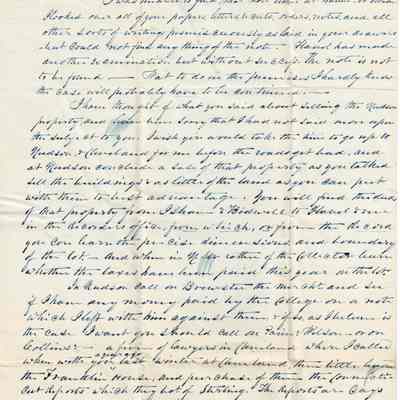 I looked over all of your papers letters, notes, orders, notes and all
other sorts of writing promiscuously as laid in your drawers
but could not find any thing of the note. Hazel has made
another examination but without success. The note is not
to be found — What to do in the premises I hardly know
the case will probably have to be continued. —
I have thought of what you said about selling the Hudson
property, and am sorry that I had not said more upon
the subject to you. I wish you would take the time to go up to
Hudson & Cleaveland for me before the roads get bad, and
at Hudson conclude a sale of that property as you talked
sell the buildings & as little of the land as you can put
with them to best advantage. You will find the deeds
of that property from
in the recorders office, from which, or from the record
you can learn the precise dimensions and boundary
of the lot. And when in
whether the taxes have been paid this year on the lot
In Hudson call on Brewster the Merchant and see
if I have any money paid by the College on a note
which I left with him against them & if so, as I believe is
the case I want you should call on
Collins & a firm of lawyers in Cleaveland where I called
when with you last winter at Cleaveland, then little beyond
the Franklin House, and purchase of them the Connecti-
cut Reports which they got of Sterling. The Reports are Days